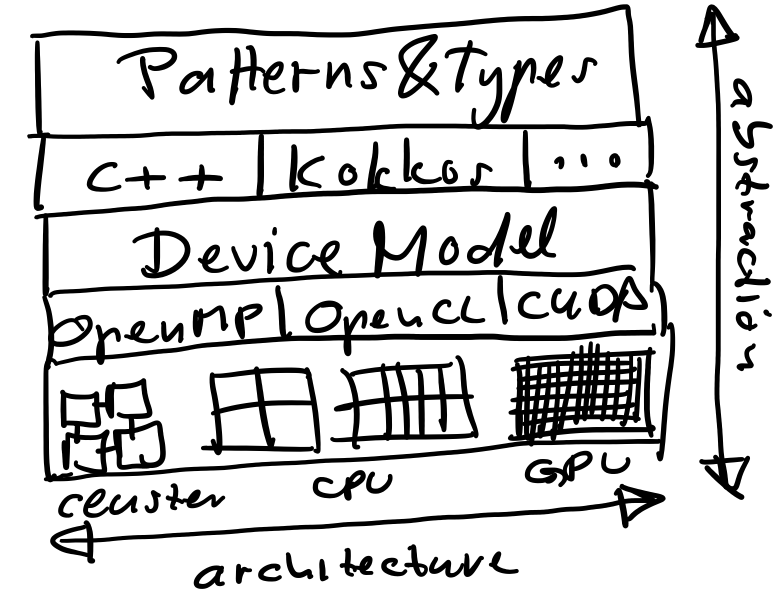 Patterns & Types
C++ Kokkos ...
Device Model
OpenMP OpenCL CUDA
cluster CPU GPU
architecture
abstraction